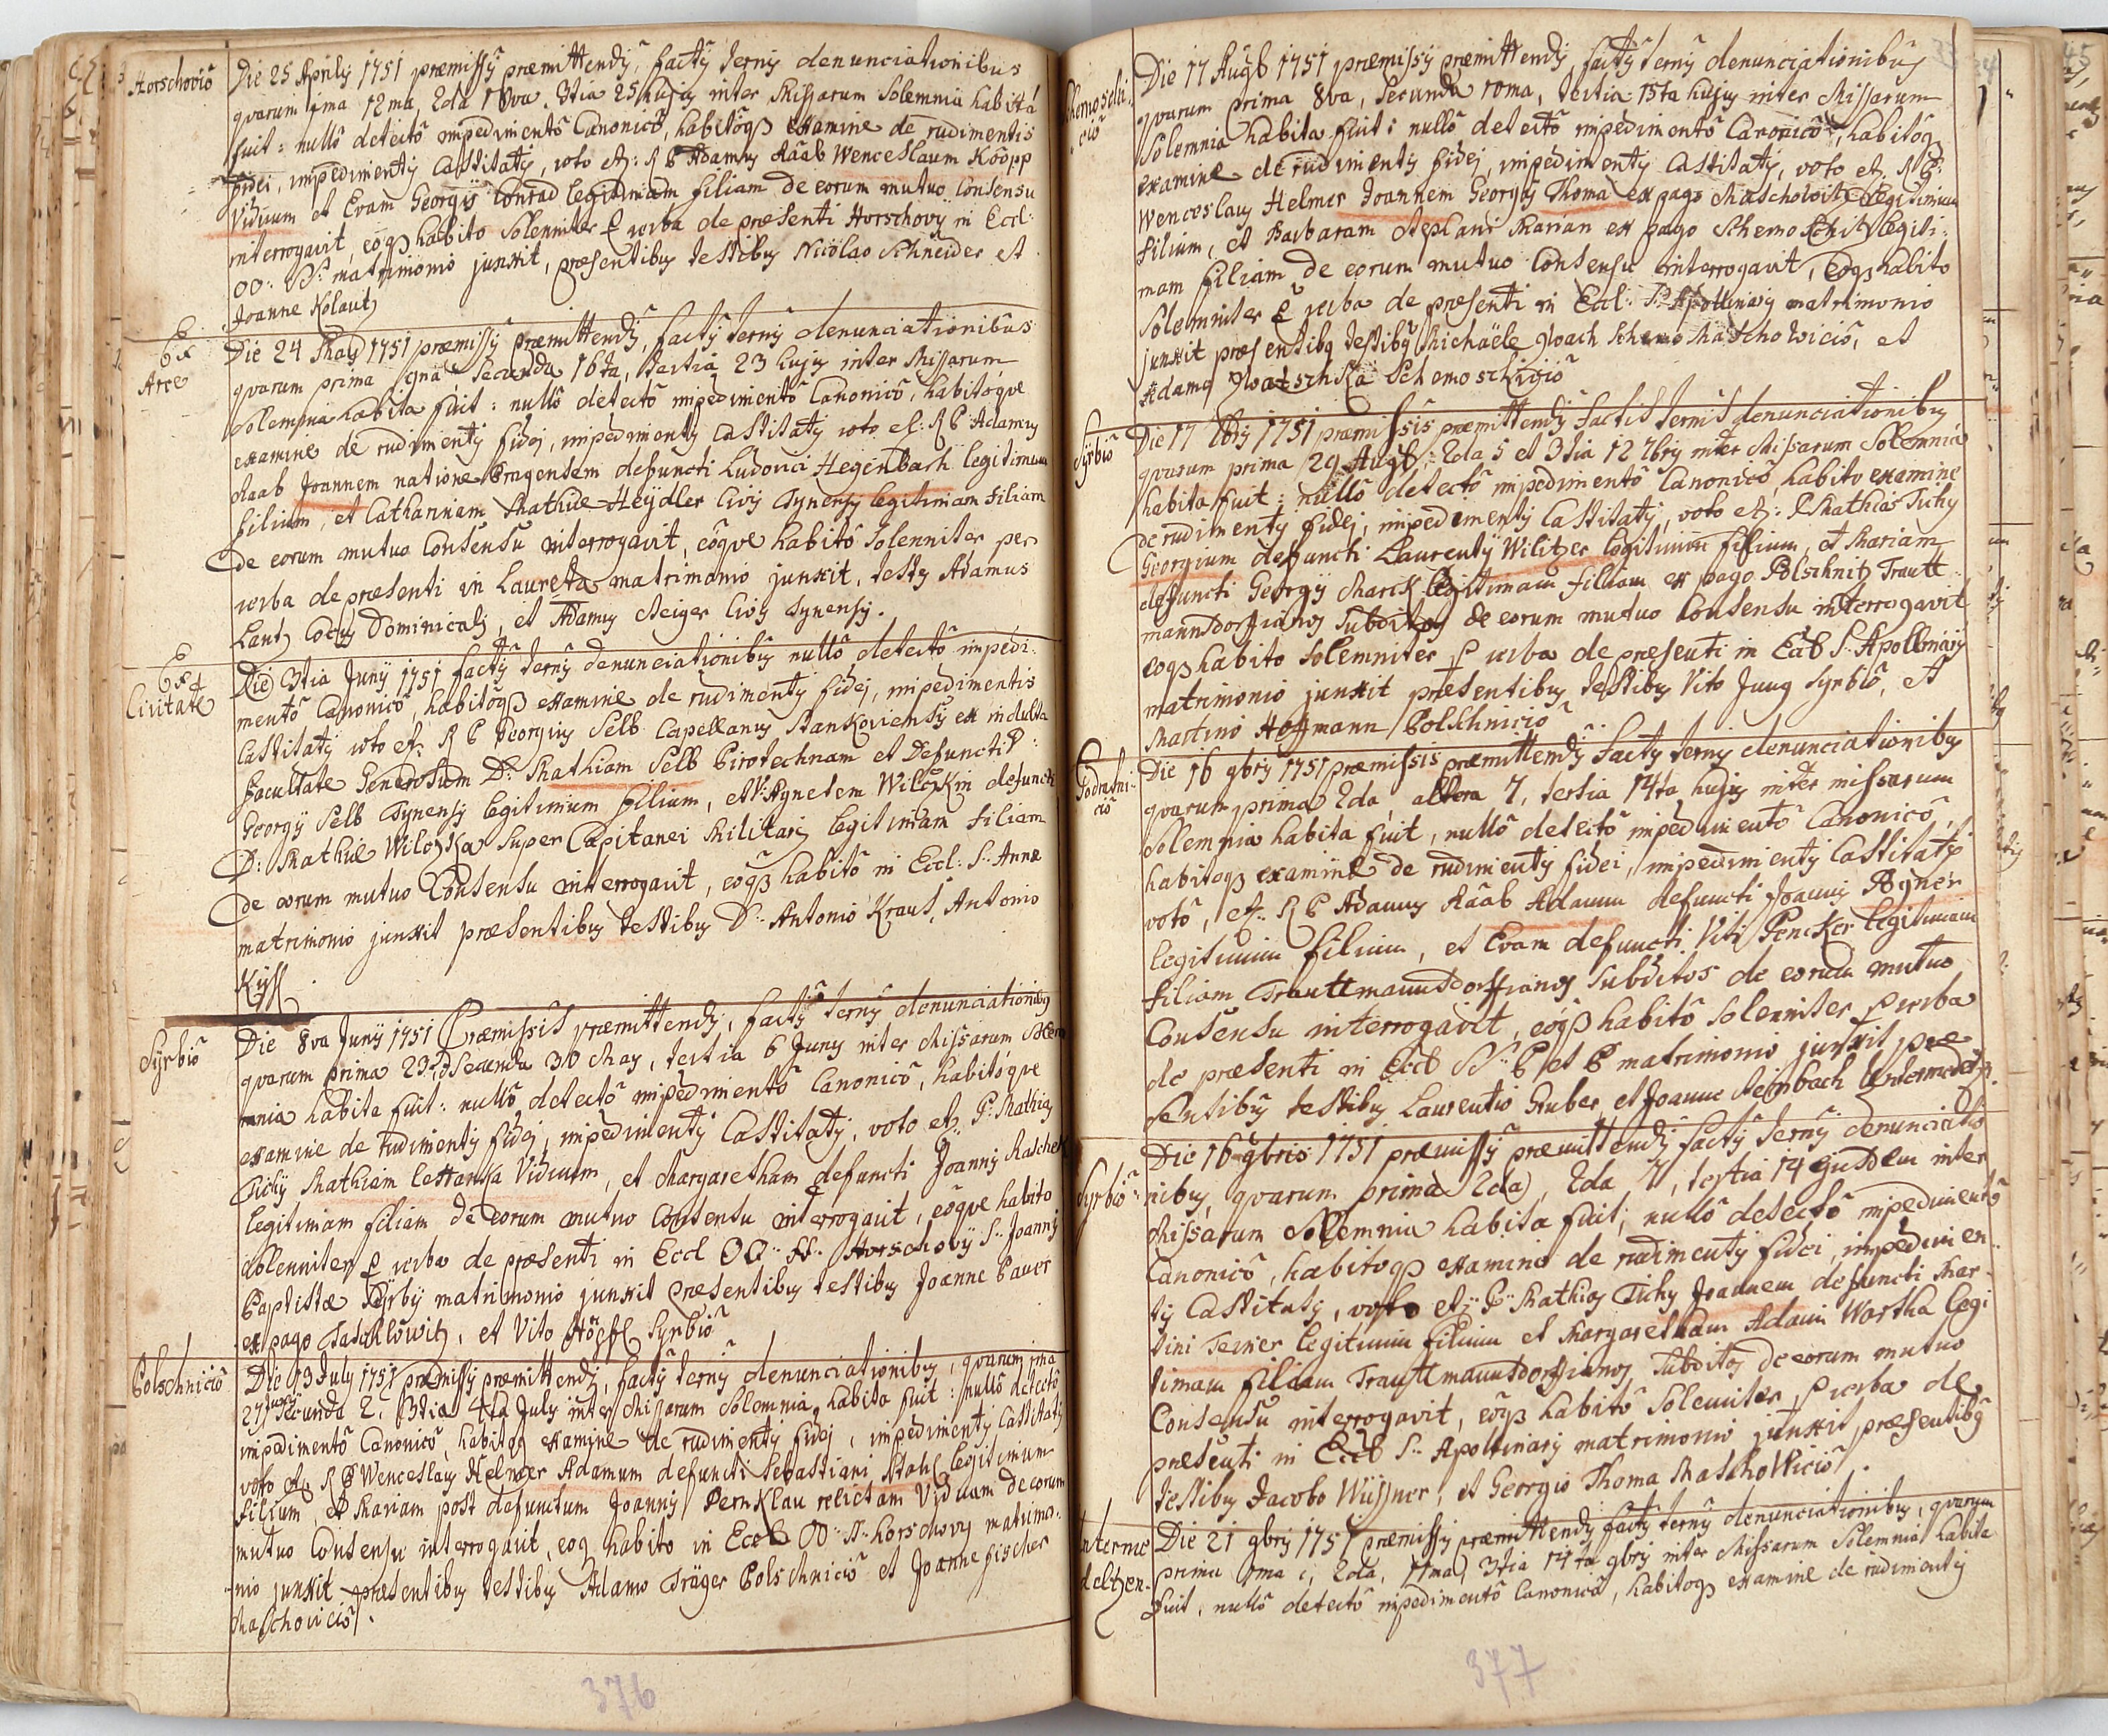 Horschoviô
Die 25 Aprilỹ 1751 præmissỹ præmittendỹ, factỹ ternỹ denunciationibus
qvarum 1ma 12ma, 2da 18va, 3tia 25 hujus inter Missarum Solemnia habita
fuit: nullô detectô impedimentô Canonicô, habitôqȝ examine de rudimentis
fidei, impedimentỹ Castitatỹ, voto etc: R P Adamus Raab Wenceslaum Köopp
Viduum et Evam Georgii Conrad legitimam filiam de eorum mutuo Consensu
interrogavit, eôqȝ habito Solenniter P verba de præsenti Horschovÿ in Eccl:
OO: SS: matrimonio junxit, præsentibus testibus Nicolao Schneider et
Joanne Kolautz
Ex
Arce
Die 24 Maÿ 1751 præmissỹ præmittendỹ, factỹ ternỹ denunciationibus
qvarum prima 9na, Secunda 16ta, tertia 23 hujus inter Missarum
Solemnia habita fuit: nullô detectô impedimentô Canonicô, habitôqve
examine de rudimentỹ fidej, impedimentỹ Castitatỹ voto etc: R P Adamus
Raab Joannem natione Pragensem defuncti Ludovici Hegenbarth legitimum
filium, et Catharinam Mathiæ Heÿdler Civis Tynensỹ legitimam filiam
de eorum mutuo Consensu interrogavit, eôqve habitô Solenniter per
verba de præsenti in Laureta matrimonio junxit, testes Adamus
Lautz Cocus Dominicalis, et Adamus Steiger Civis Tynensỹ.
Ex
Civitate
Die 3tia Junÿ 1751 factỹ ternỹ denunciationibus nullô detectô impedi-
mentô Canonicô, habitôqȝ examine de rudimentỹ fidej, impedimentis
Castitatỹ voto etc: R P Georgius Selb Capellanus Stankoviensỹ ex indulta
facultate Generosum D: Mathiam Selb Pirotechnam et Defuncti D:
Georgÿ Selb Tynensỹ legitimum filium, et V: Agnetem Wilczkin defuncti
D: Mathiæ Wilczka Super Capitanei Militarỹ legitimam filiam
de eorum mutuo Consensu interrogavit, eôqȝ habitô in Eccl: S: Annæ
matrimonio junxit præsentibus testibus D: Antonio Kraus, Antonio
Kÿsl
Syrbiô
Die 8va Junÿ 1751 Præmissis præmittendỹ, factỹ ternỹ denunciationibus
qvarum prima 23, Secunda 30 May, tertia 6 Juny inter Missarum Solem
mnia habita fuit: nullô detectô impedimentô Canonicô, habitôqve
examine de rudimentỹ fidej, impedimentỹ Castitatỹ, voto etc: P: Mathias
Tichÿ Mathiam Viduum, et Margaretham defuncti Joannis Raschek
legitimam filiam de eorum mutuo Consensu interrogavit, eôqve habito
Solenniter P verba de præsenti in Eccl OO: SS: Horschovÿ S: Joannis
Baptistæ Syrbÿ matrimonio junxit præsentibus testibus Joanne Bauer
ex pago Taschlowitz, et Vito Höpfl Syrbiô
Polschniciô
Die 13 July 1751 præmissỹ præmittendỹ, factỹ ternỹ denunciationibus, qvarum 1ma
27 Juny Secunda 2, 3tia 4ta July inter Missarum Solemnia habita fuit: nullô detectô
impedimentô Canonicô, habitoqȝ examine de rudimentỹ fidej, impedimentỹ Castitatỹ
voto etc R P Wenceslaus Helmer Adamum defuncti Sebastiani Stahl legitimum
filium, et Mariam post defunctum Joannis Pernklau relictam Viduam de eorum
mutuo Consensu interrogavit, eoqȝ habito in Eccl OO: SS: Horschovy matrimo-
nio junxit præsentibus testibus Adamo Träger Polschniciô et Joanne fischer
Maschoviciô.
376
Schemoschi-
ciô
Die 17 Augb 1751 præmissỹ præmittendỹ, factỹ ternỹ denunciationibus
qvarum prima 8va, Secunda 10ma, tertia 15ta hujus inter Missarum
Solemnia habita fuit: nullô detectô impedimentô Canonicô, habitôqȝ
examine de rudimentỹ fidej, impedimentỹ Castitatỹ, voto etc. R P:
Wenceslaus Helmer Joannem Georgÿ Thoma ex pago Maschowitz legitimum
filium, et Barbaram Stephani Marian ex pago Schemoschitz legiti-
mam filiam de eorum mutuo Consensu interrogavit, eoqȝ habito
Solemniter P verba de præsenti in Eccl: S: Apollinarỹ matrimonio
junxit præsentibq testibq Michaële Maschowiciô, et
Adamo Schemoschiciô
Syrbiô
Die 17 7bris 1751 præmissis præmittendỹ factis ternis denunciationibus
qvarum prima 29 Augb, 2da 5 et 3tia 12 7bris inter Missarum Solemnia
habita fuit: nullô detectô impedimentô Canonicô, habito examine
de rudimentỹ fidej, impedimentỹ Castitatỹ, voto etc: P Mathias Tichy
Georgium defuncti Laurentÿ Wilitzer legitimum filium, et Mariam
defuncti Georgÿ Marck legitimam filiam ex pago Polschnitz Trautt-
mannsdorffianos Subditos de eorum mutuo Consensu interrogavit
eoqȝ habito Solemniter P verba de præsenti in Eccl S: Apollinarỹ
matrimonio junxit præsentibus testibus Vito Jung Syrbiô, et
Martino Hoffmann Polschniciô
Podrasni-
ciô
Die 16 9bris 1751 præmissis præmittendỹ factỹ ternỹ denunciationibus
qvarum prima 2da, altera 7, tertia 14ta hujus inter missarum
Solemnia habita fuit, nullô detectô impedimentô Canonicô,
habitoqȝ examine de rudimentỹ fidei, impedimentỹ Castitatỹ
votô, etc: R P Adamus Raab Adamum defuncti Joannis Pögner
legitimum filium, et Evam defuncti Viti Pencker legitimam
filiam Trauttmannsdorffianos Subditos de eorum mutuo
Consensu interrogavit, eôqȝ habitô Solenniter P verba
de præsenti in Eccl SS: P et P matrimonio junxit præ-
sentibus testibus Laurentio Gruber, et Joanne Steinbach
Syrbiô
Die 16 9bris 1751 præmissỹ præmittendỹ factỹ ternỹ denunciatio
nibus, qvarum prima 2da, 2da 7, tertia 14 Ejusdem inter
Missarum Solemnia habita fuit; nullô detectô impedimentô
Canonicô, habitoqȝ examine de rudimentỹ fidei, impedimen-
tỹ Castitatỹ, voto etc: P: Mathias Tichy Joannem defuncti Mar-
tini legitimum filium et Margaretham Adami Wartha legi
timam filiam Trauttmannsdorffianos Subditos de eorum mutuo
Consensu interrogavit, eôqȝ habitô Solenniter P verba de
præsenti in Eccl S: Apollinarỹ matrimonio junxit præsentibq
testibus Jacobo Wüssner, et Georgio Thoma Maschowiciô.
Unterme
deltzen
Die 21 9bris 1751 præmissỹ præmittendỹ factỹ ternỹ denunciationibus, qvarum
prima 1ma, 2da, 11ma, 3tia 14ta 9bris inter Missarum Solemnia habita
fuit, nullô detectô impedimentô Canonicô, habitoqȝ examine de rudimentỹ
377